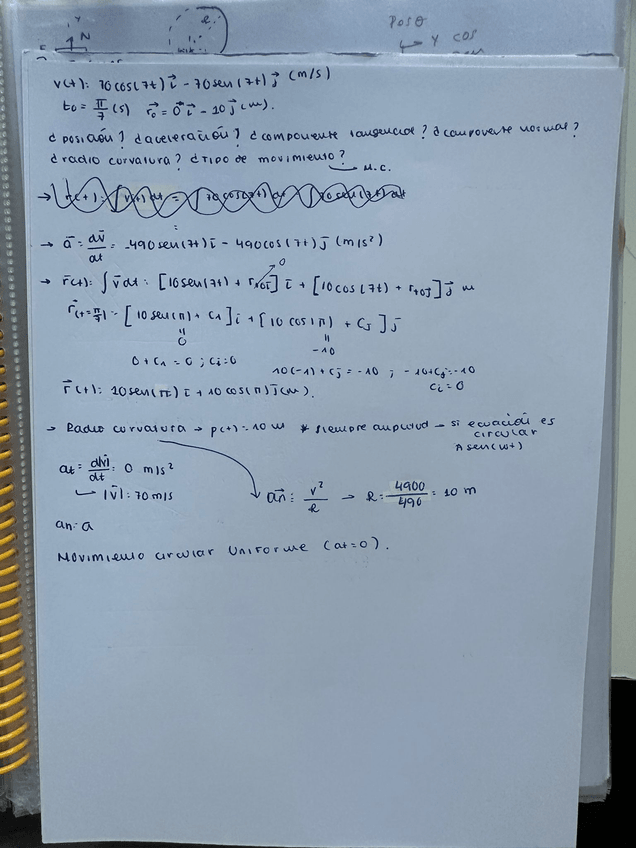 Y
N
R
POSθ
↳ Y COS
v(t): 70cos(7t) i⃗ - 70sen(7t) j⃗ (m/s)
t₀ = π/7 (s) r⃗₀ = 0 i⃗ - 10 j⃗ (m).
¿posición? ¿aceleración? ¿componente tangencial? ¿componente normal?
¿radio curvatura? ¿tipo de movimiento?
↳ M.C.
→ a̅ = dv̅/dt = -490sen(7t) i̅ - 490cos(7t) j̅ (m/s²)
→ r̅(t): ∫ v̅ dt = [10sen(7t) + r_t0i] i̅ + [10cos(7t) + r_t0j] j⃗ m
0
r̅(t=π/7) = [10sen(π) + C₁] i̅ + [10 cos(π) + Cj] j̅
0 -10
0 + C₁ = 0 ; Ci = 0 10(-1) + Cj = -10 ; -10 + Cj = -10
Ci = 0
r⃗(t): 10sen(π) i̅ + 10 cos(π) j̅ (m).
→ Radio curvatura → ρ(t) = 10 m * siempre amplitud → si ecuación es
circular
A sen(ωt)
at = d|v̅|/dt = 0 m/s²
↳ |v̅| : 70 m/s
a⃗n = v²/R → R = 4900/490 = 10 m
an = a
Movimiento circular Uniforme (at=0).